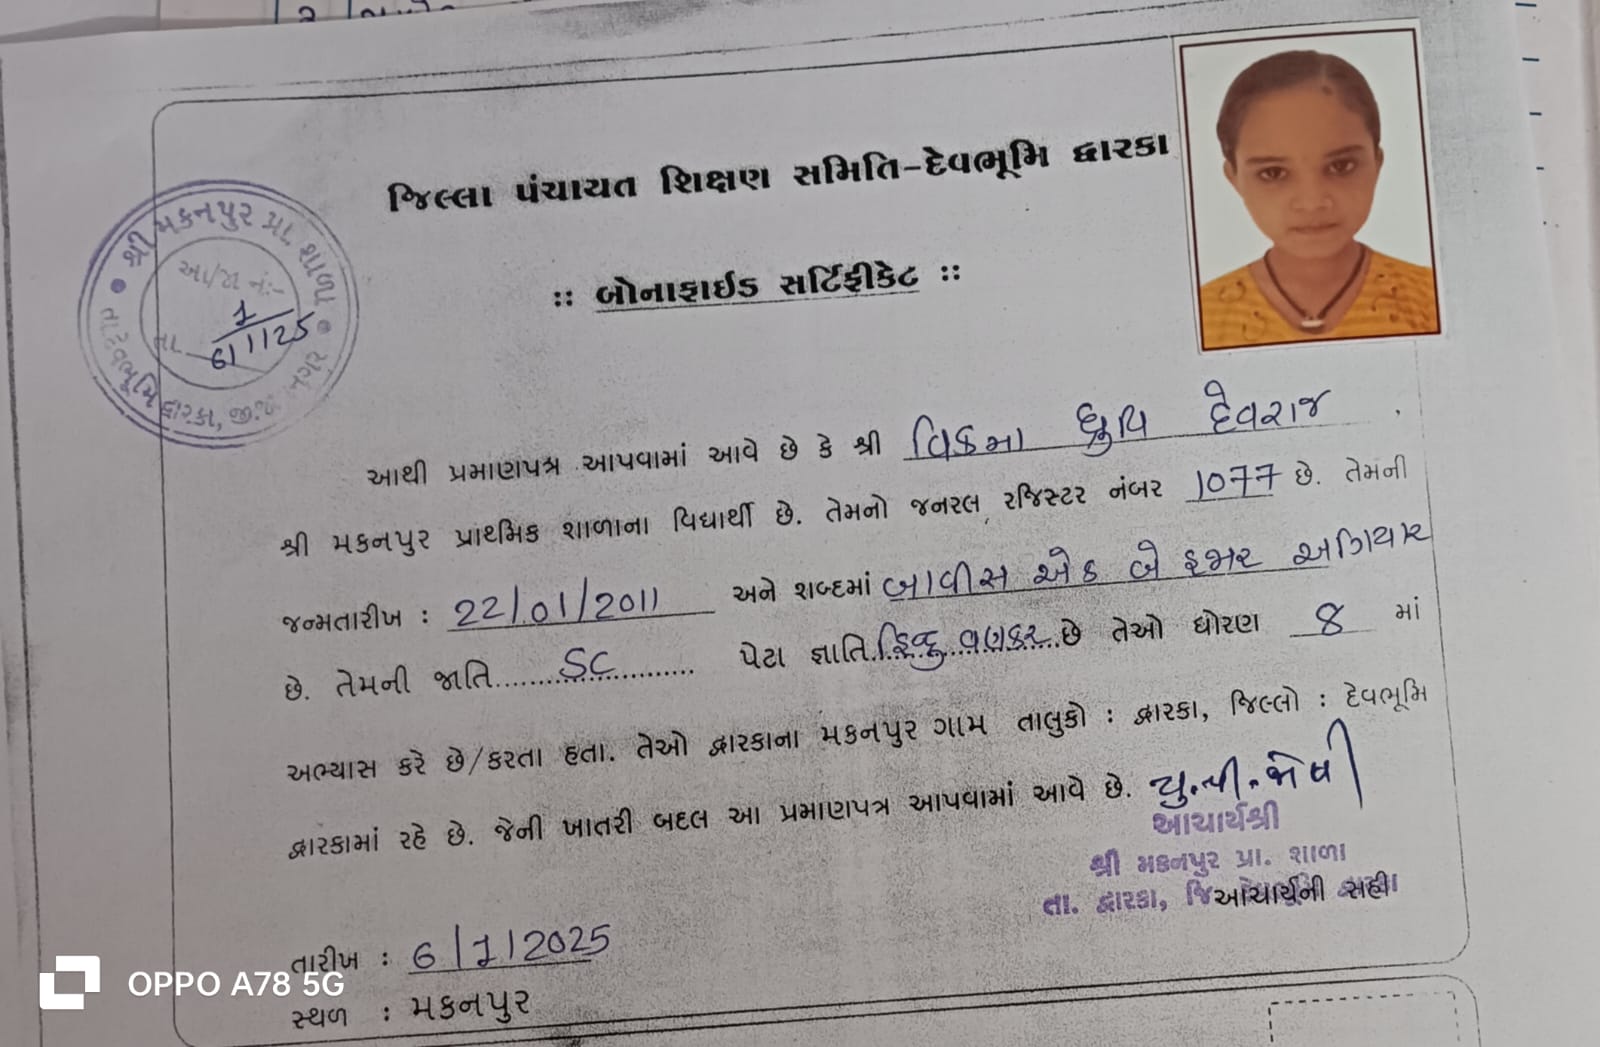 જિલ્લા પંચાયત શિક્ષણ સમિતિ-દેવભૂમિ દ્વારકા
:: બોનાફાઈડ સર્ટિફીકેટ ::
શ્રી મકનપુર પ્રા. શાળા
આ/જા નં:-
1
તા. 6/1/25
તા. દેવભૂમિ દ્વારકા, જી. નગર
આથી પ્રમાણપત્ર આપવામાં આવે છે કે શ્રી વિકમા ધ્રુવિ દેવરાજ
શ્રી મકનપુર પ્રાથમિક શાળાના વિદ્યાર્થી છે. તેમનો જનરલ રજિસ્ટર નંબર 1077 છે. તેમની
જન્મતારીખ : 22/01/2011 અને શબ્દમાં બાવીસ એક બે હજાર અગિયાર
છે. તેમની જાતિ SC પેટા જ્ઞાતિ હિન્દુ વણકર છે તેઓ ધોરણ 8 માં
અભ્યાસ કરે છે/કરતા હતા. તેઓ દ્વારકાના મકનપુર ગામ તાલુકો : દ્વારકા, જિલ્લો : દેવભૂમિ
દ્વારકામાં રહે છે. જેની ખાતરી બદલ આ પ્રમાણપત્ર આપવામાં આવે છે.
આચાર્યશ્રી
શ્રી મકનપુર પ્રા. શાળા
તા. દ્વારકા, જિ
આચાર્યની સહી
તારીખ : 6/1/2025
સ્થળ : મકનપુર
OPPO A78 5G